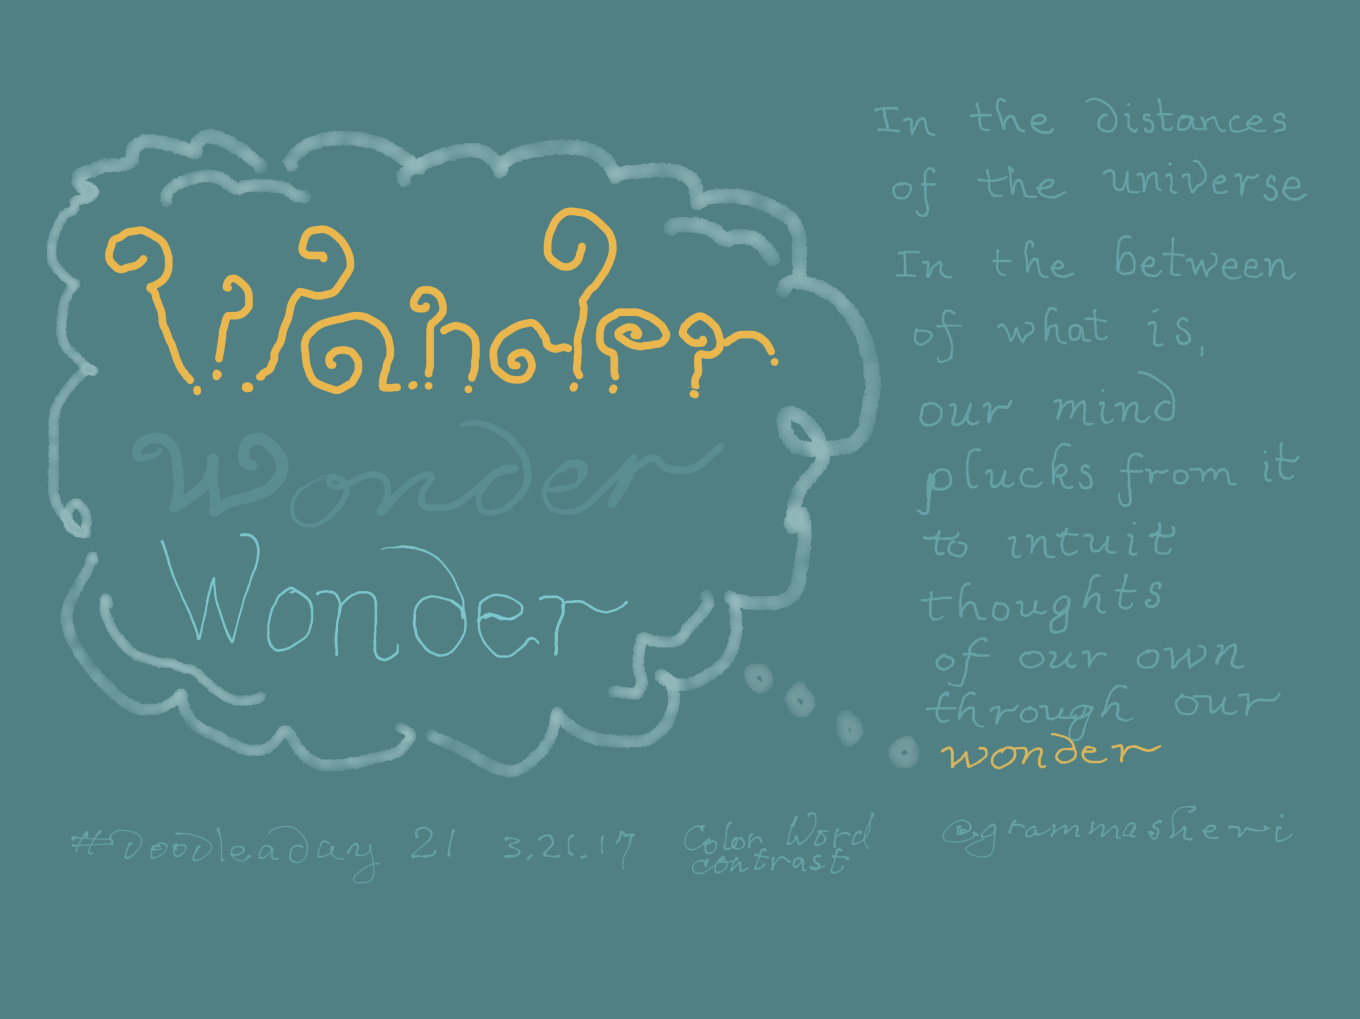 Wonder
Wonder
Wonder
In the distances
of the universe
In the between
of what is,
our mind
plucks from it
to intuit
thoughts
of our own
through our
wonder
#Doodleaday 21 3.21.17 Color Word contrast @grammasheri